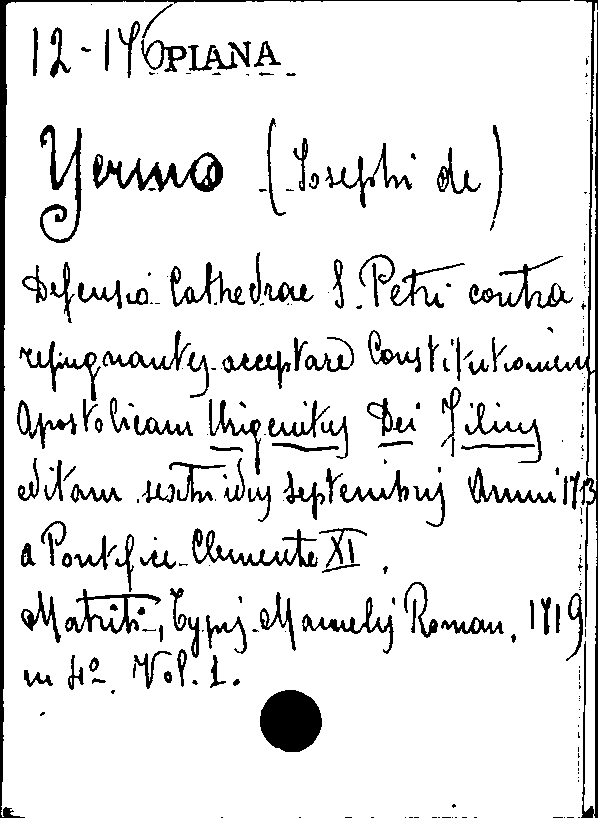 12-176 OPIANA
Yermo (Josephi de)
Defensio Cathedrae S. Petri contra
repugnantes acceptare Constitutionem
Apostolicam Unigenitus Dei Filius
editam sexti idus septembris Anni 1713
a Pontifice Clemente XI.
Matriti, Typis Manuelis Roman, 1719
in 4º. Vol. 1.